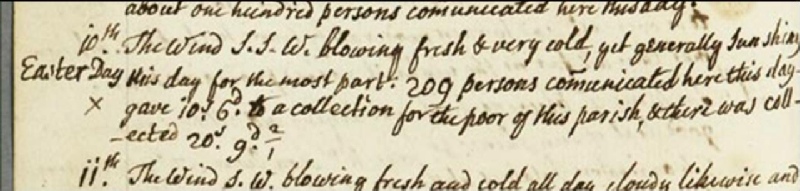 about one hundred persons comunicated here this day.
10.th The Wind S. S. W. blowing fresh & very cold, yet generally Sun shiny
Easter Day this day for the most part: 209 persons com̄unicated here this day
× gave 10.s 6.d to a collection for the poor of this parish, & there was coll-
-ected 20.s 9.d
11.th The Wind S. W. blowing fresh and cold all day cloudy likewise and